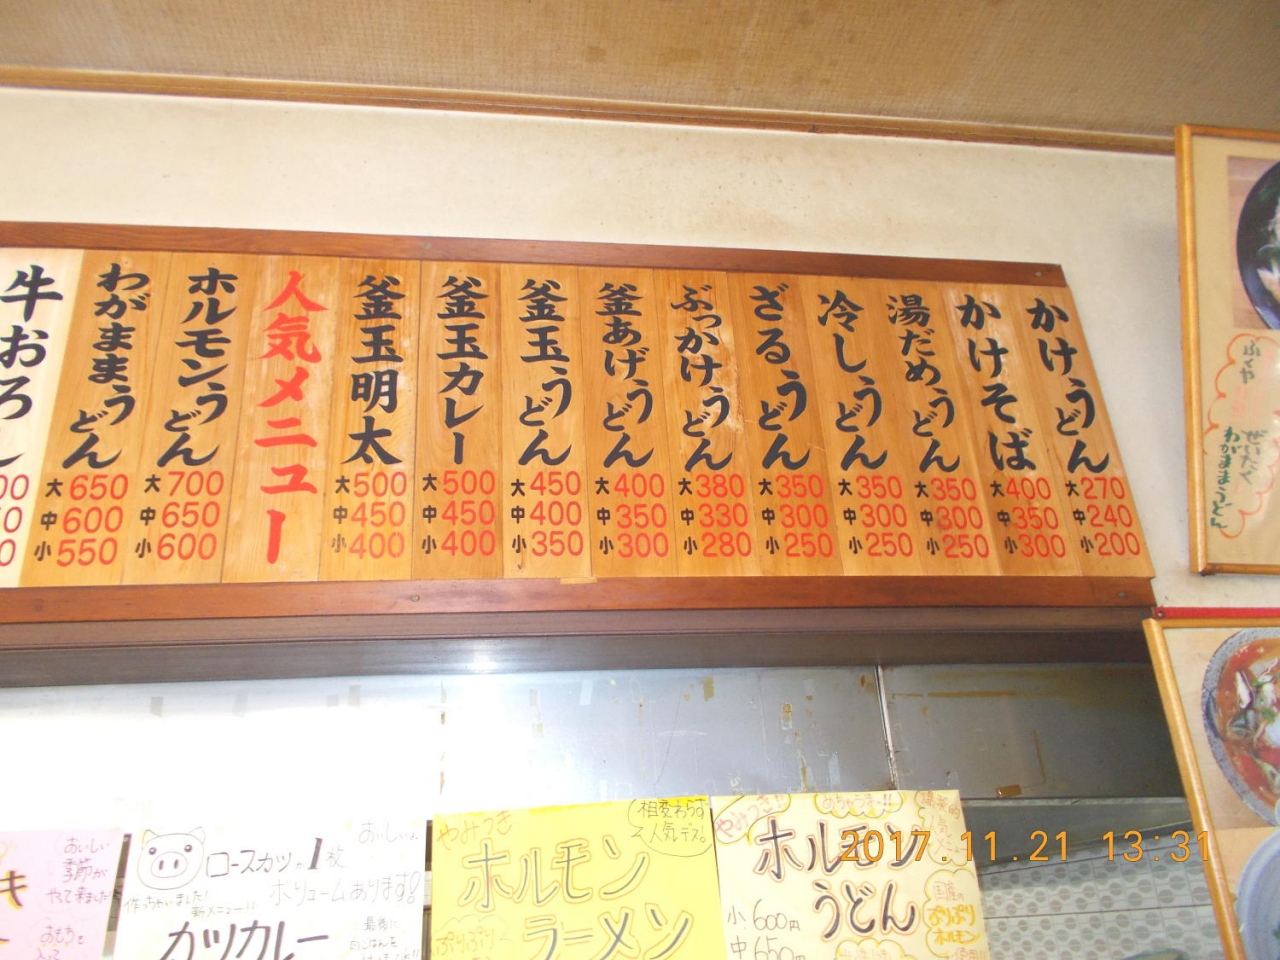 かけうどん
大270
中240
小200
かけそば
大400
中350
小300
湯だめうどん
大350
中300
小250
冷しうどん
大350
中300
小250
ざるうどん
大350
中300
小250
ぶっかけうどん
大380
中330
小280
釜あげうどん
大400
中350
小300
釜玉うどん
大450
中400
小350
釜玉カレー
大500
中450
小400
釜玉明太
大500
中450
小400
人気メニュー
ホルモンうどん
大700
中650
小600
わがままうどん
大650
中600
小550
牛おろし
ぜいたく
わがままうどん
おいしい
季節が
やって来ました
ロースカツが1枚
ボリュームあります!
作っちゃいました!
新メニュー!!
カツカレー
最後に
やみつき
相変わらず
人気デス。
ホルモン
ラーメン
ぷりぷり
やみつき!
ホルモン
うどん
小600円
中650円
国産の
ぷりぷり
ホルモン
2017.11.21 13:31